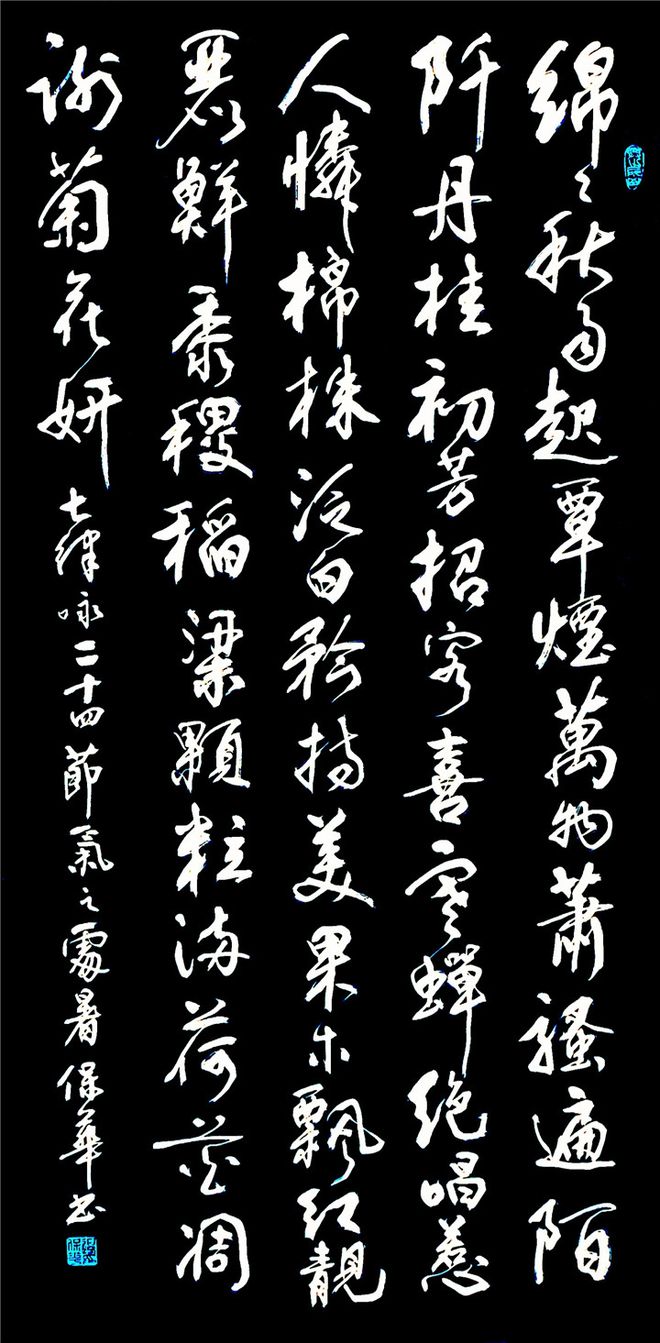 綿々秋雨起覃煙萬物蕭騷遍陌
阡丹桂初芳招客喜寒蟬绝唱惹
人憐棉株泛白矜持美果木飄红靓
麗鮮黍稷稻粱顆粒满荷花凋
谢菊花妍 七律咏二十四節氣之處暑 保華书